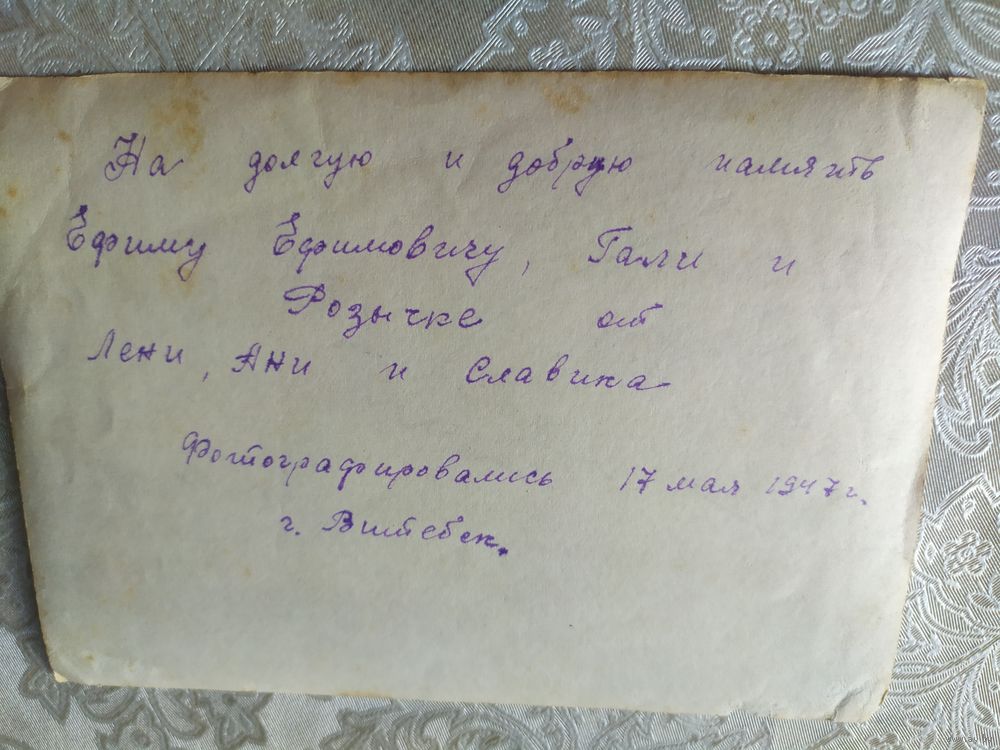 На долгую и добрую память
Ефиму Ефимовичу, Гали и
Розычке от
Лени, Ани и Славика
Фотографировались 17 мая 1947 г.
г. Витебск.